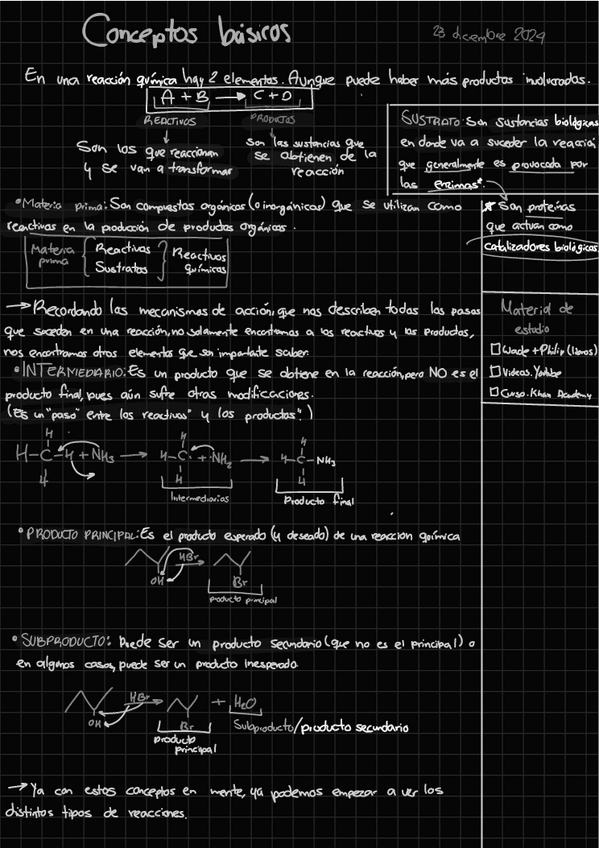 Conceptos básicos.
23 diciembre 2024
En una reacción química hay 2 elementos. Aunque puede haber más productos involucrados.
A + B → C + D
REACTIVOS
PRODUCTOS
Son los que reaccionan
y se van a transformar
Son las sustancias que
se obtienen de la
reacción
SUSTRATO: Son sustancias biológicas
en donde va a suceder la reacción
que generalmente es provocada por
las enzimas*.
* Son proteínas
que actúan como
catalizadores biológicos
• Materia prima: Son compuestos orgánicos (o inorgánicos) que se utilizan como
reactivos en la producción de productos orgánicos.
Materia
prima
Reactivos
Sustratos
Reactivos
químicos
→ Recordando los mecanismos de acción, que nos describen todos los pasos
que suceden en una reacción, no solamente encontramos a los reactivos y los productos,
nos encontramos otros elementos que son importante saber.
Material de
estudio
Wade + Philip (libros)
Videos. Youtube
Curso. Khan Academy
• INTERMEDIARIO: Es un producto que se obtiene en la reacción, pero NO es el
producto final, pues aún sufre otras modificaciones.
(Es un "paso" entre los reactivos" y los productos")
H
H–C–H + NH₃ → H–C· + ·NH₂ → H–C–NH₂
H
Intermediarios
Producto final
• PRODUCTO PRINCIPAL: Es el producto esperado (y deseado) de una reacción química
HBr
OH
Br
producto principal
• SUBPRODUCTO: Puede ser un producto secundario (que no es el principal) o
en algunos casos, puede ser un producto inesperado
HBr
OH
Br
+ H₂O
producto
principal
Subproducto/producto secundario
→ Ya con estos conceptos en mente, ya podemos empezar a ver los
distintos tipos de reacciones.